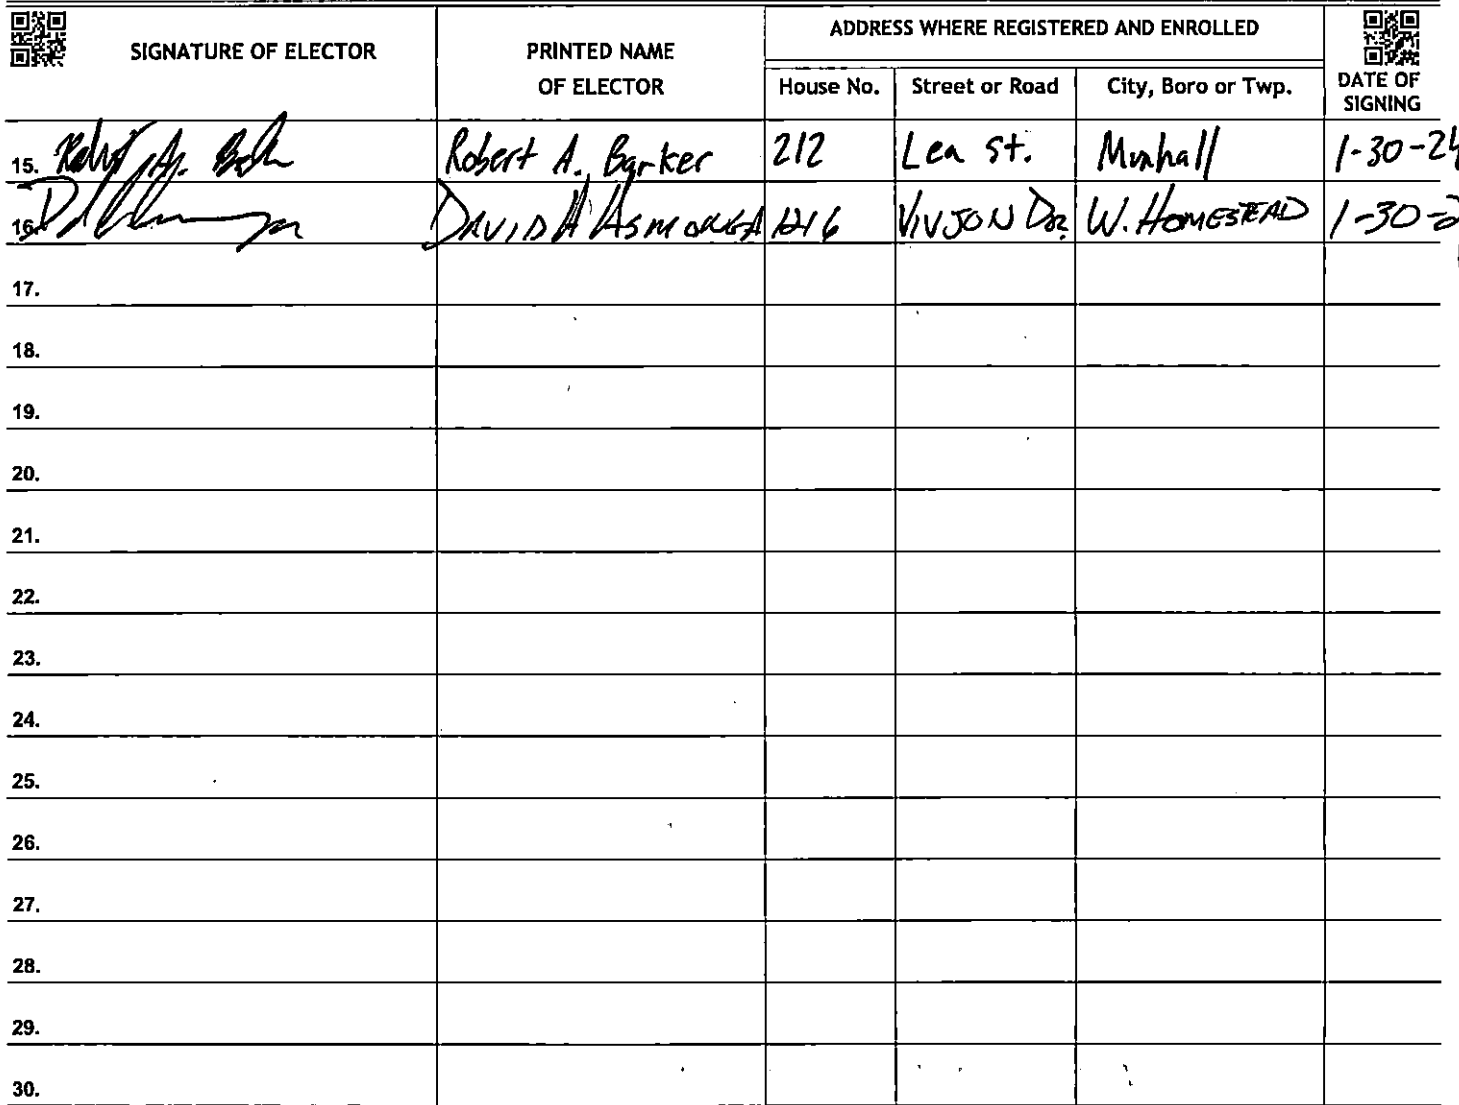 SIGNATURE OF ELECTOR
PRINTED NAME
OF ELECTOR
ADDRESS WHERE REGISTERED AND ENROLLED
House No.
Street or Road
City, Boro or Twp.
DATE OF
SIGNING
15. Robert A. Barker 212 Lea St. Munhall 1-30-24
16. DAVID A ASMONGA 1216 VIVJON DR. W. HOMESTEAD 1-30-2
17.
18.
19.
20.
21.
22.
23.
24.
25.
26.
27.
28.
29.
30.